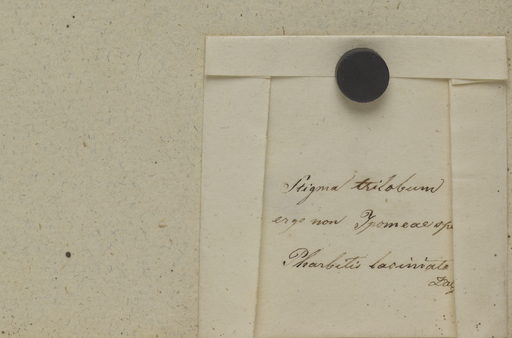 Stigma trilobum
ergo non Ipomeae spe
Pharbitis laciniata
Dalz